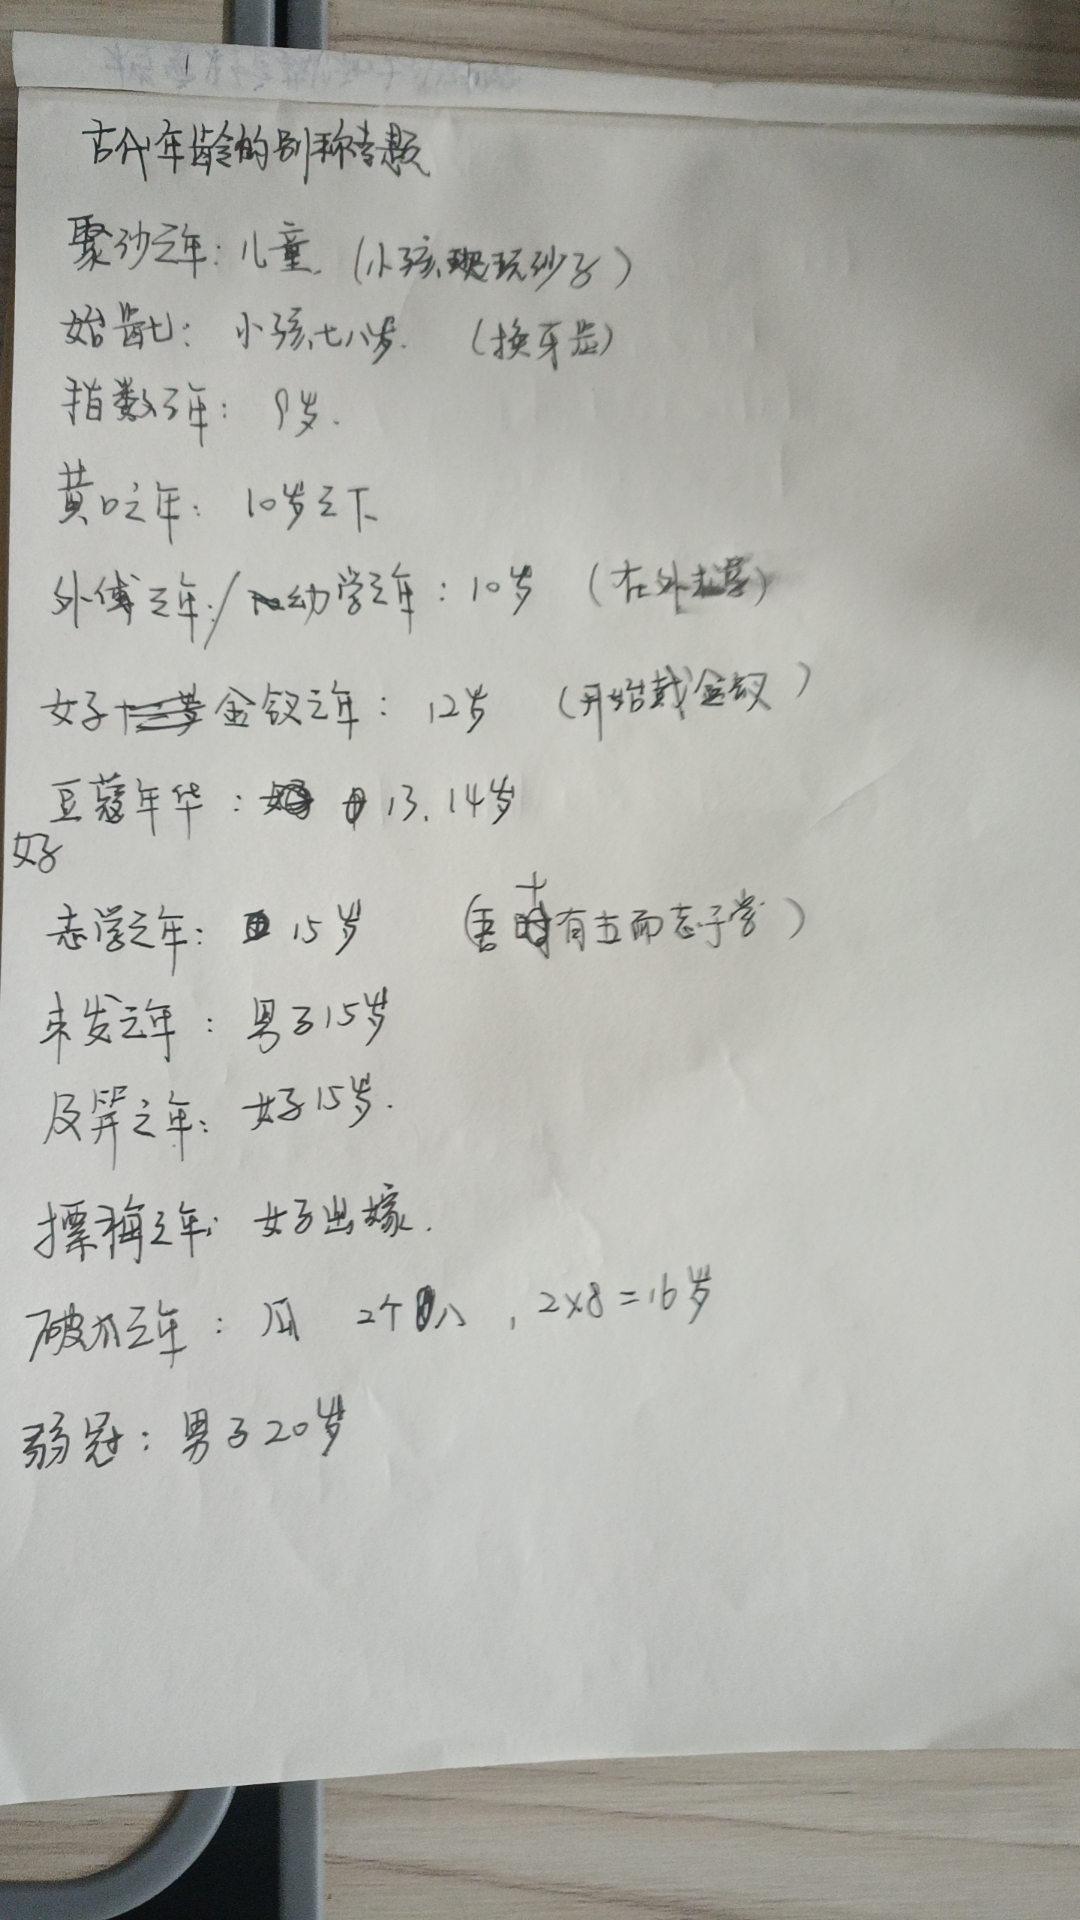 古代年龄的别称专题
聚沙之年：儿童.（小孩玩沙子）
始龀：小孩七八岁.（换牙齿）
指数之年：9岁.
黄口之年：10岁之下
外傅之年/幼学之年：10岁（在外求学）
女子金钗之年：12岁（开始戴金钗）
豆蔻年华：13.14岁
女子
志学之年：15岁（吾十有五而志于学）
束发之年：男子15岁
及笄之年：女子15岁.
摽梅之年：女子出嫁.
破瓜之年：瓜 2个八，2x8=16岁
弱冠：男子20岁